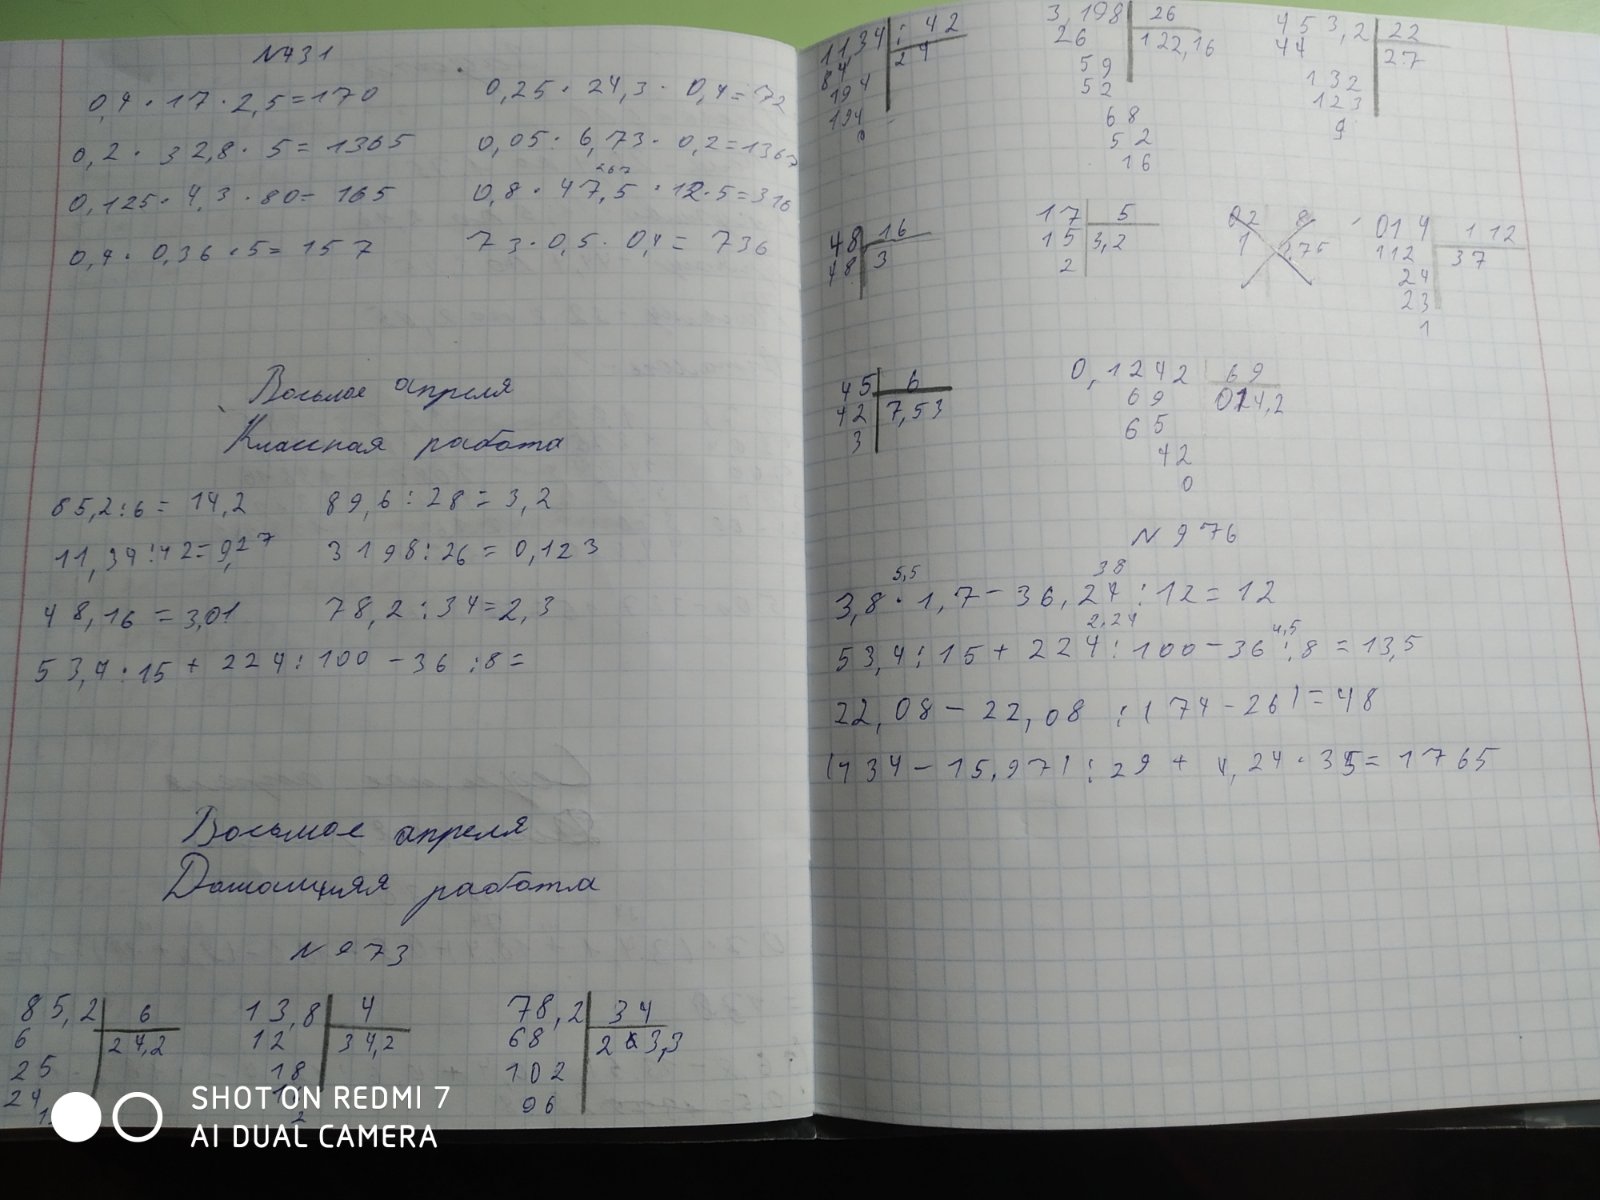 N431
0,4 · 17 · 2,5 = 170
0,25 · 24,3 · 0,4 = 72
0,2 · 32,8 · 5 = 1365
0,05 · 6,73 · 0,2 = 1367
267
0,125 · 4,3 · 80 = 165
0,8 · 47,5 · 12 · 5 = 316
0,4 · 0,36 · 5 = 157
73 · 0,5 · 0,4 = 736
Восьмое апреля
Классная работа
85,2 : 6 = 14,2
89,6 : 28 = 3,2
11,34 : 42 = 0,27
3198 : 26 = 0,123
48,16 = 3,01
78,2 : 34 = 2,3
53,4 : 15 + 224 : 100 - 36 : 8 =
Восьмое апреля
Домашняя работа
N 973
85,2 6
6 24,2
25
24
13,8 4
12 34,2
18
2
78,2 34
68 2 3,3
102
96
1134 : 42
84 24
194
194
0
3,198 26
26 122,16
59
52
68
52
16
453,2 22
44 27
132
123
9
48 16
48 3
17 5
15 3,2
2
02 8
1 ,75
014 112
112 37
24
23
1
45 6
42 7,53
3
0,1242 69
69 014,2
65
42
0
N 976
5,5 38
3,8 · 1,7 - 36,24 : 12 = 12
2,24 4,5
53,4 : 15 + 224 : 100 - 36 : 8 = 13,5
22,08 - 22,08 : (74 - 26) = 48
(134 - 15,97) : 29 + 4,24 · 35 = 1765
SHOT ON REDMI 7
AI DUAL CAMERA